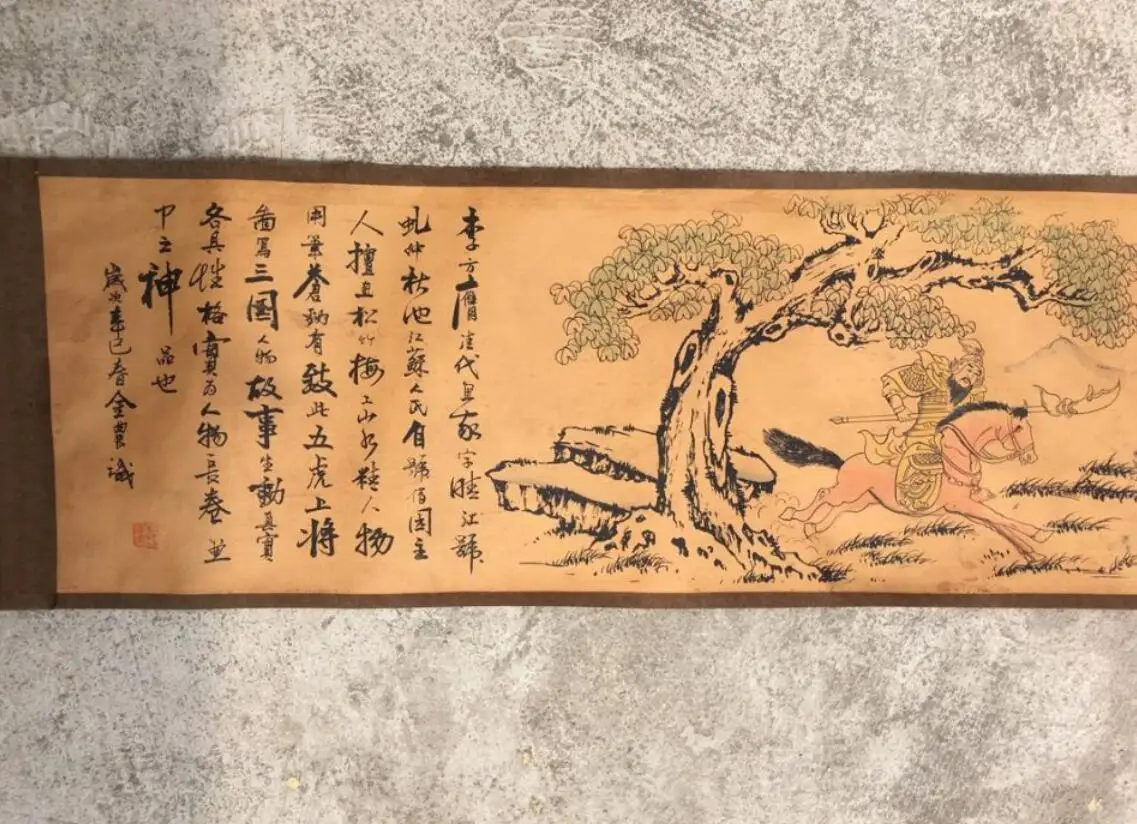 李方膺清代畫家字晴江號
虬仲秋池江蘇人氏自號借園主
人擅画松竹梅工山水雜人物
用筆蒼勁有致此五虎上將
畵寫三國人物故事生動真實
各具性格實为人物長卷並
中之神品也
歲次辛巳春金農識